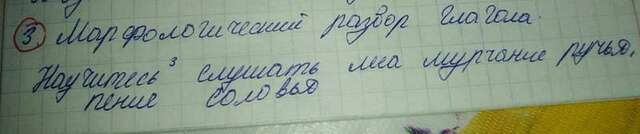 3. Марфологический разбор глагола.
Научитесь ³ слушать леса мурчание ручья,
пение соловья